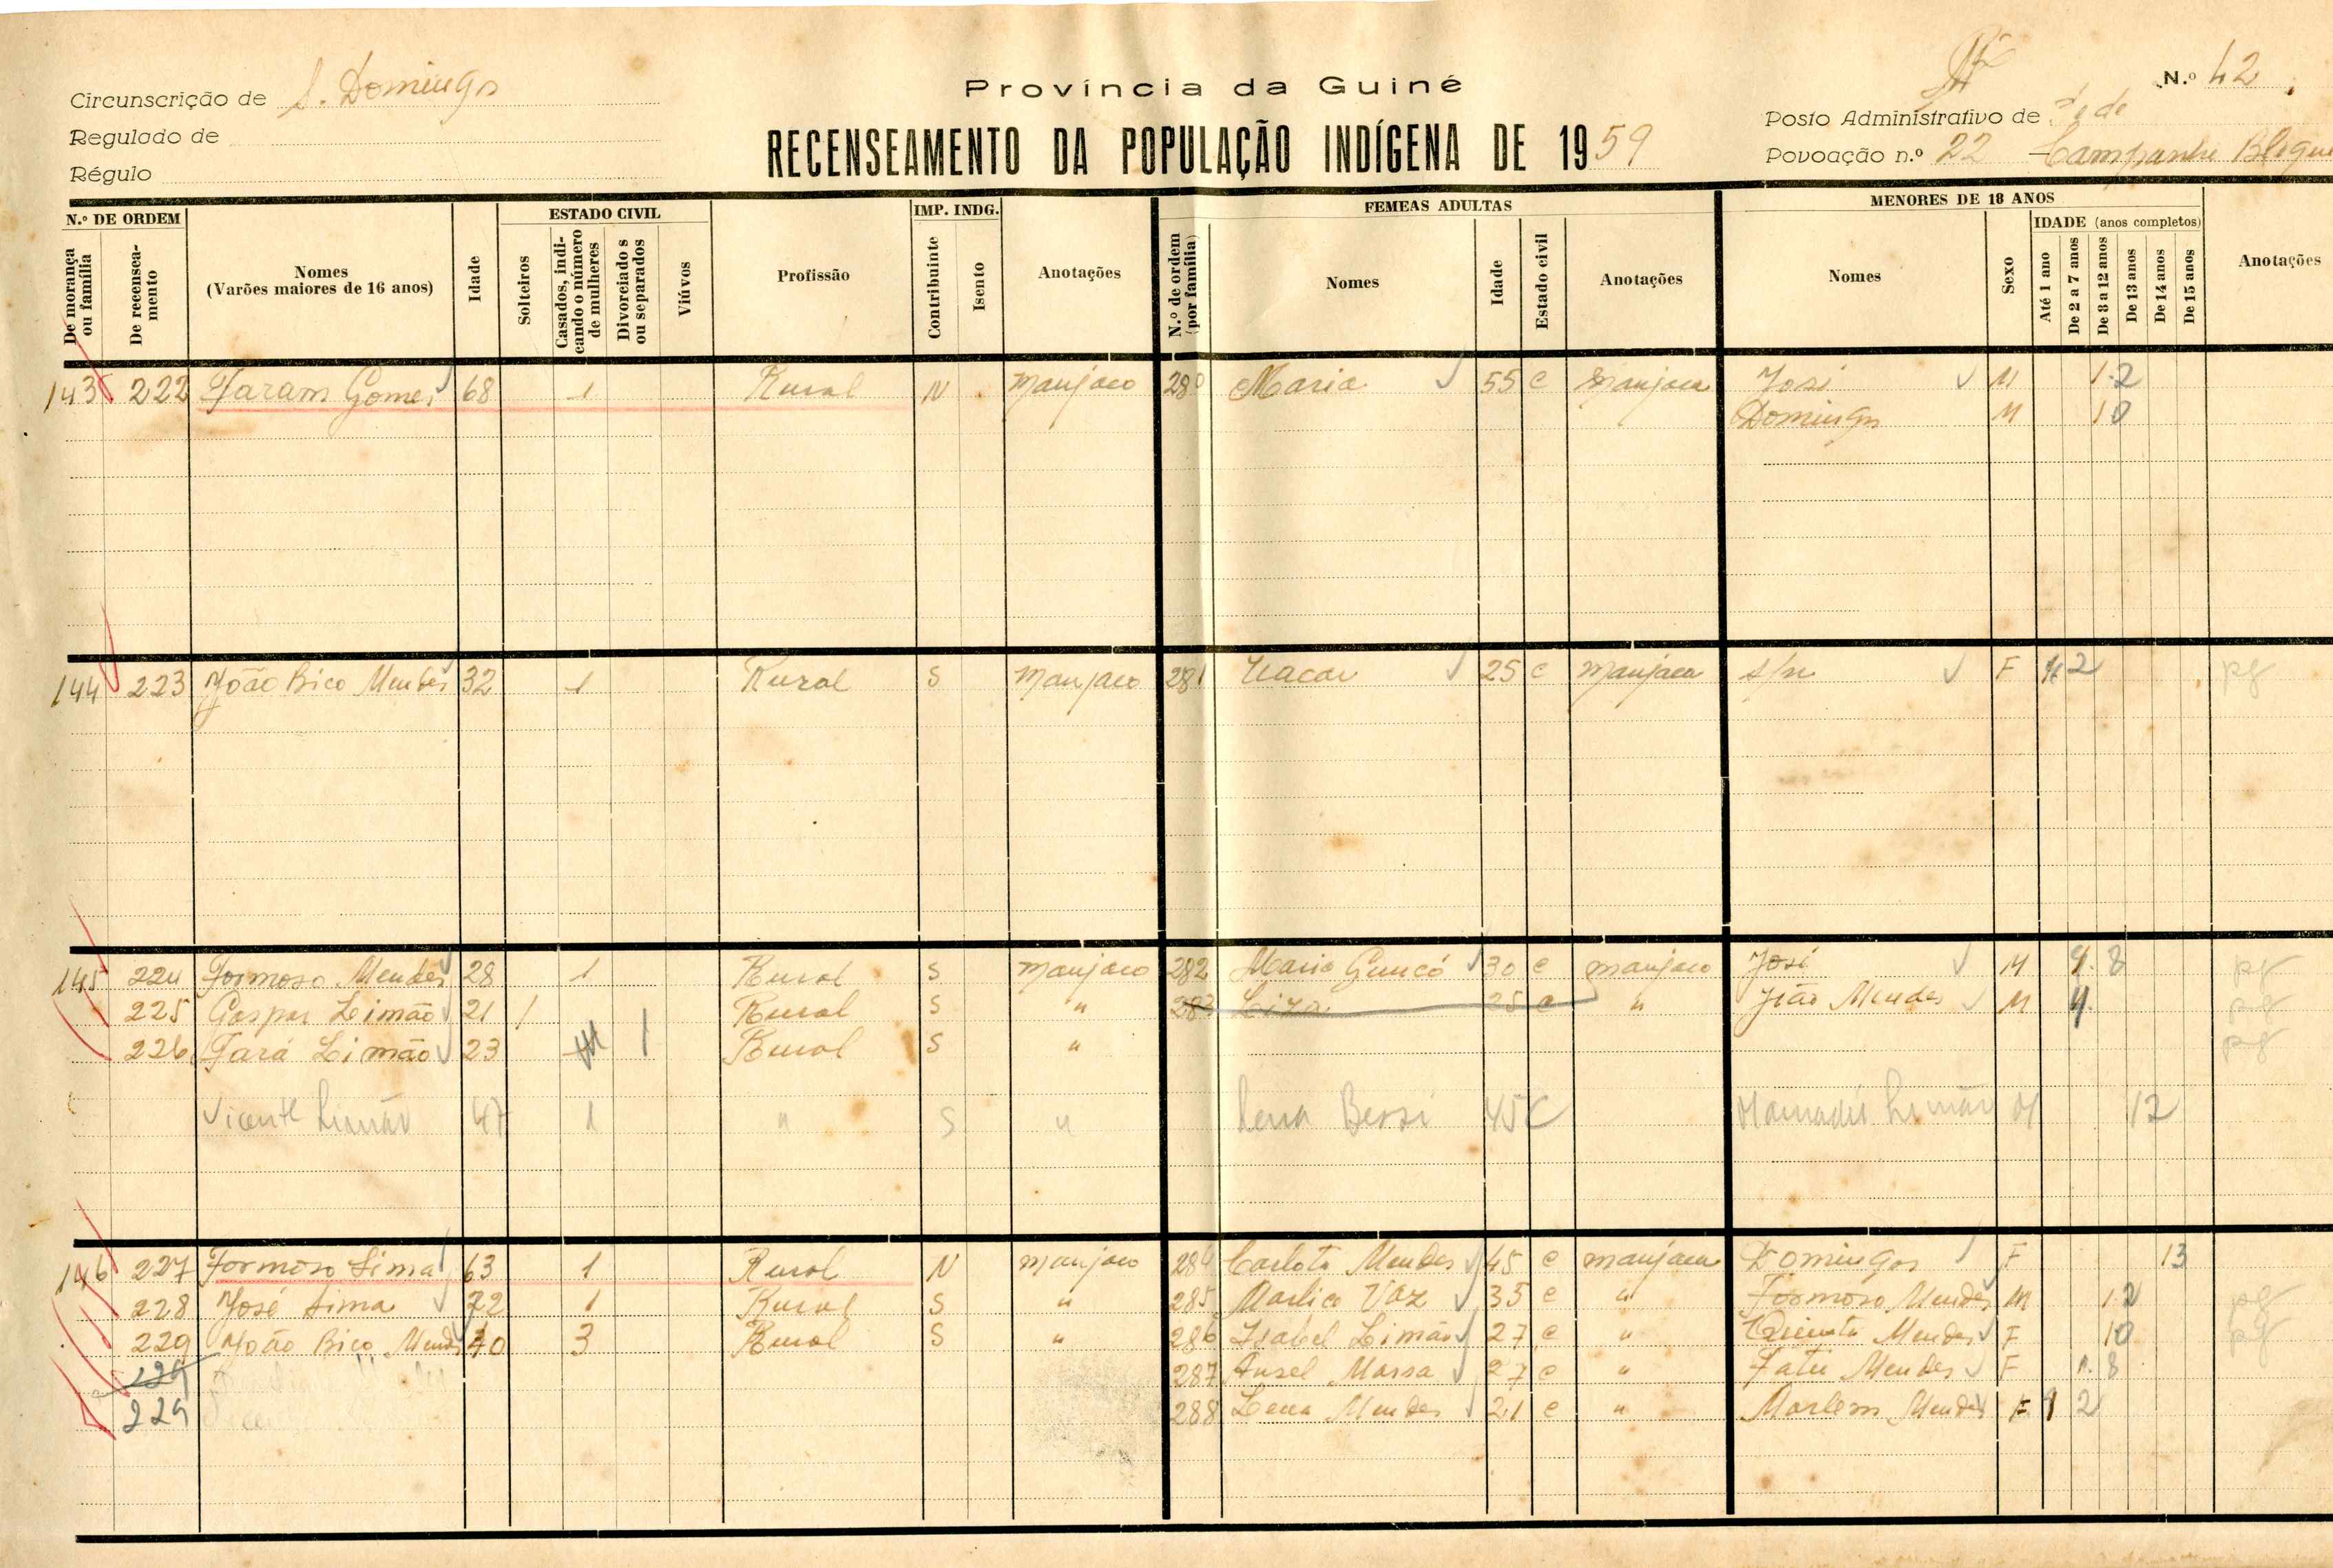 Província da Guiné
N.º 42
Circunscrição de S. Domingos
Regulado de
Régulo
RECENSEAMENTO DA POPULAÇÃO INDÍGENA DE 1959
Posto Administrativo de Sede
Povoação n.º 22 Campanhe
N.º DE ORDEM
De morança ou família
De recensea-mento
Nomes
(Varões maiores de 16 anos)
Idade
ESTADO CIVIL
Solteiros
Casados, indi-cando o número de mulheres
Divorciados ou separados
Viúvos
Profissão
IMP. INDG.
Contribuinte
Isento
Anotações
FEMEAS ADULTAS
N.º de ordem (por família)
Nomes
Idade
Estado civil
Anotações
MENORES DE 18 ANOS
Nomes
Sexo
IDADE (anos completos)
Até 1 ano
De 2 a 7 anos
De 8 a 12 anos
De 13 anos
De 14 anos
De 15 anos
Anotações
143 222 Faram Gomes 68 1 Rural N Manjaco 280 Maria 55 C Manjaca José M 12
Domingos M 10
144 223 João Bico Mendes 32 1 Rural S Manjaco 281 25 C Manjaca s/n F 2 pg
145 224 Formoso Mendes 28 1 Rural S Manjaco 282 Maria Guncó 30 C Manjaco José M 8 pg
225 Gaspar Limão 21 1 Rural S " 283 Liza 25 C " João Mendes M pg
226 Fará Limão 23 1 Rural S " pg
Vicente Limão 47 1 " S " Lena Bessi 45 C Mamadú Limão M 12
146 227 Formoso Lima 63 1 Rural N Manjaco 284 Carlota Mendes 45 C Manjaca Domingas F 13
228 José Lima 22 1 Rural S " 285 Marlica Vaz 35 C " Formoso Mendes M 12 pg
229 João Bico Mendes 40 3 Rural S " 286 Isabel Limão 27 C " Quinta Mendes F 10 pg
229 287 Ansel Massa 27 C " Fatu Mendes F 8
229 288 Lena Mendes 21 C " Marlem Mendes F 2